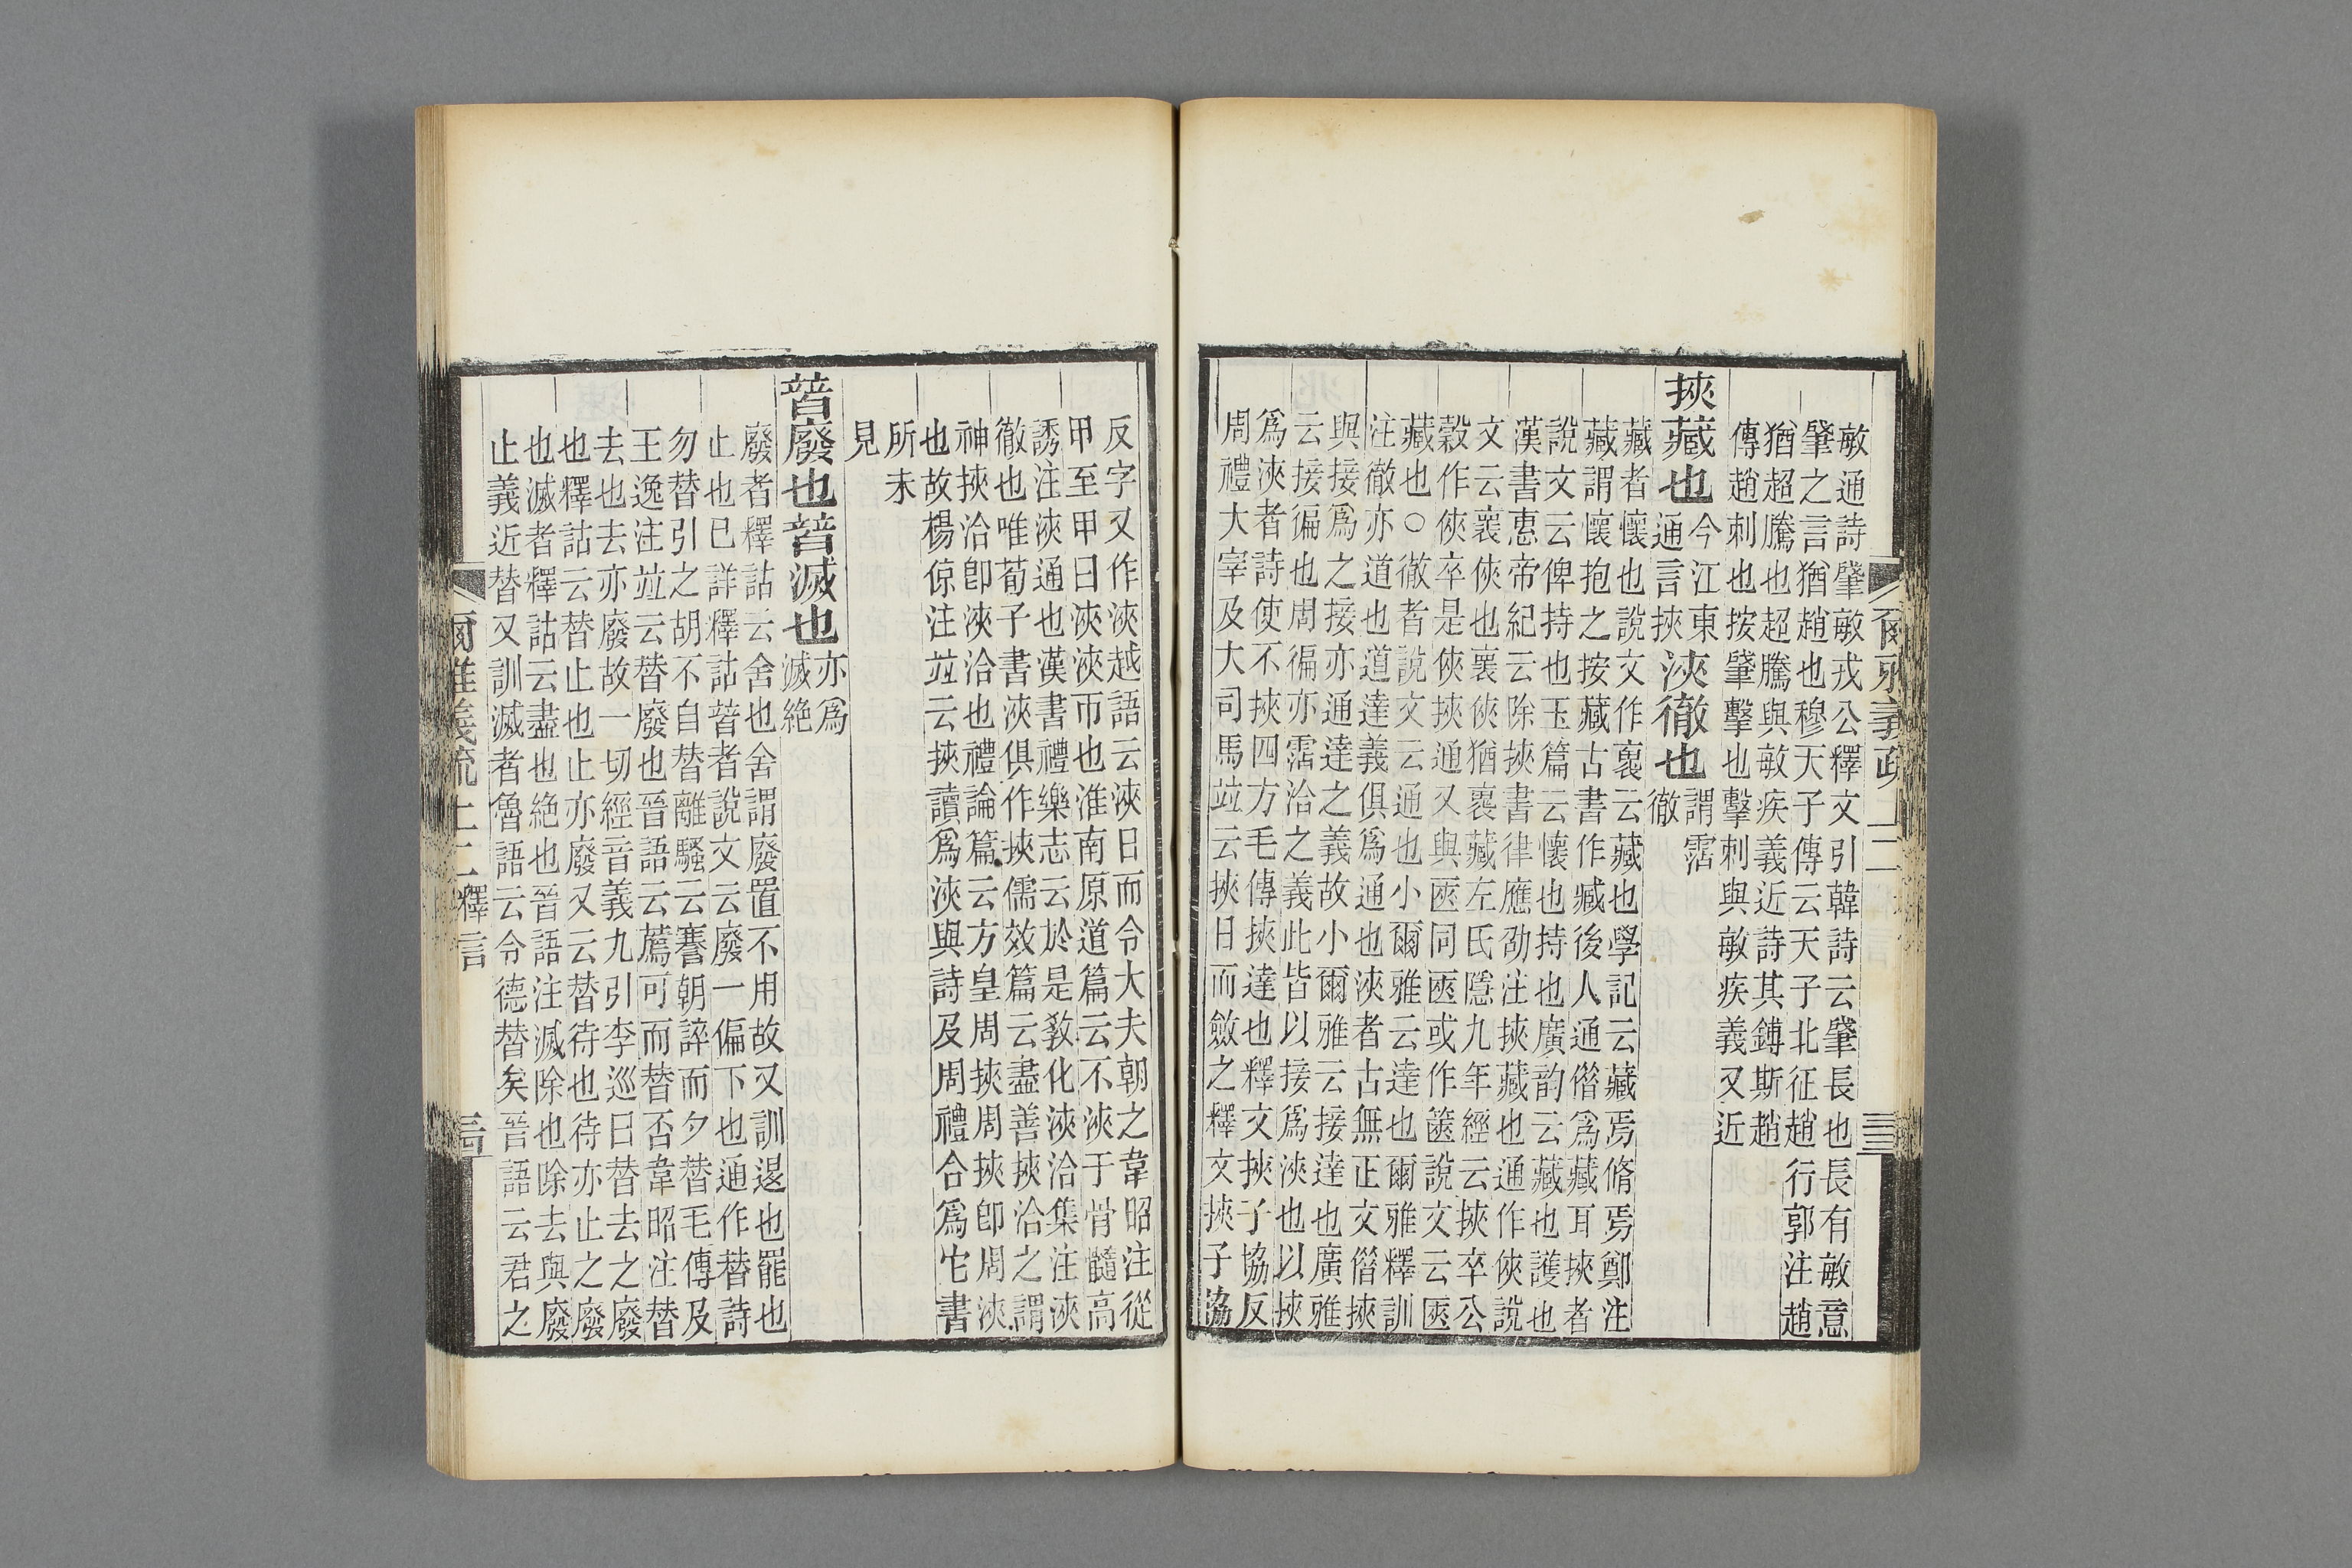 爾雅義疏上二
敏通詩肇敏戎公釋文引韓詩云肇長也長有敏意
肇之言猶趙也穆天子傳云天子北征趙行郭注趙
猶超騰也超騰與敏疾義近詩其鎛斯趙
傳趙刺也按肇擊也擊刺與敏疾義又近
挾藏也今江東通言挾浹徹也謂霑徹
藏者懷也說文作褱云藏也學記云藏焉脩焉鄭注
藏謂懷抱之按藏古書作臧後人通偺爲藏耳挾者
說文云俾持也玉篇云懷也持也廣韵云藏也護也
漢書惠帝紀云除挾書律應劭注挾藏也通作俠說
文云褱俠也褱俠猶褱藏左氏隱九年經云挾卒公
穀作俠卒是俠挾通又與匧同匧或作篋說文云匧
藏也○徹者說文云通也小爾雅云達也爾雅釋訓
注徹亦道也道達義俱爲通也浹者古無正文偺挾
與接爲之接亦通達之義故小爾雅云接達也廣雅
云接徧也周徧亦霑洽之義此皆以接爲浹也以挾
爲浹者詩使不挾四方毛傳挾達也釋文挾子協反
周禮大宰及大司馬竝云挾日而斂之釋文挾子協
反字又作浹越語云浹日而令大夫朝之韋昭注從
甲至甲日浹浹帀也淮南原道篇云不浹于骨髓高
誘注浹通也漢書禮樂志云於是敎化浹洽集注浹
徹也唯荀子書浹俱作挾儒效篇云盡善挾洽之謂
神挾洽卽浹洽也禮論篇云方皇周挾周挾卽周浹
也故楊倞注竝云挾讀爲浹與詩及周禮合爲它書
所未
見
朁廢也朁滅也亦爲滅絶
廢者釋詁云舍也舍謂廢置不用故又訓退也罷也
止也已詳釋詁朁者說文云廢一偏下也通作替詩
勿替引之胡不自替離騷云謇朝誶而夕替毛傳及
王逸注竝云替廢也晉語云薦可而替否韋昭注替
去也去亦廢故一切經音義九引李巡曰替去之廢
也釋詁云替止也止亦廢又云替待也待亦止之廢
也滅者釋詁云盡也絕也晉語注滅除也除去與廢
止義近替又訓滅者魯語云令德替矣晉語云君之
爾雅義疏上二釋言